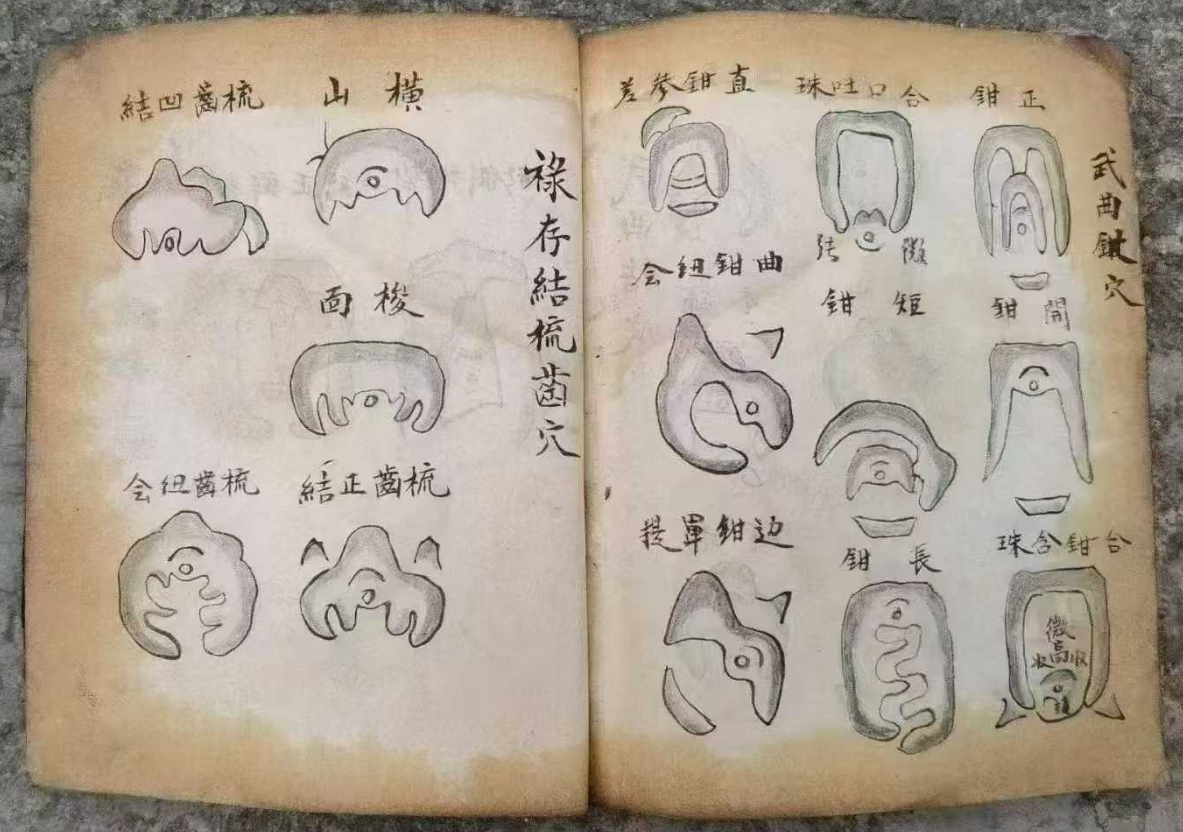 武曲鉗穴
正鉗
合口吐珠
直鉗參差
微
開鉗
短鉗
曲鉗紐会
合鉗含珠
長鉗
边鉗單提
微高
收收
祿存結梳齒穴
橫山
梳齒凹結
梭面
梳齒正結
梳齒紐会